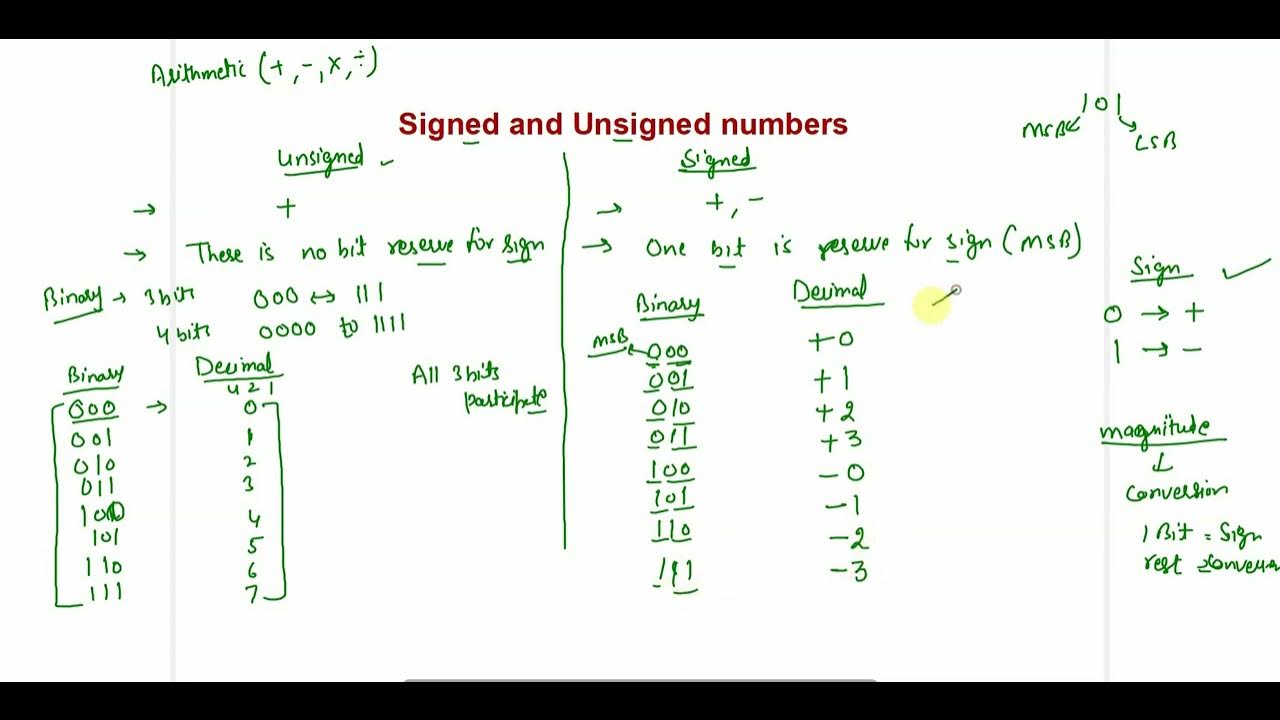 Arithmetic (+, -, x, ÷)
Signed and Unsigned numbers
101
MSB
LSB
Unsigned
→ +
→ There is no bit reserve for sign
Binary → 3 bits 000 ↔ 111
4 bits 0000 to 1111
Binary Decimal
4 2 1
000 → 0
001 1
010 2
011 3
100 4
101 5
110 6
111 7
All 3 bits
participate
Signed
→ +, -
→ One bit is reserve for sign (MSB)
Binary Decimal
MSB
000 +0
001 +1
010 +2
011 +3
100 -0
101 -1
110 -2
111 -3
Sign
0 → +
1 → -
magnitude
↓
Conversion
1 Bit = Sign
rest